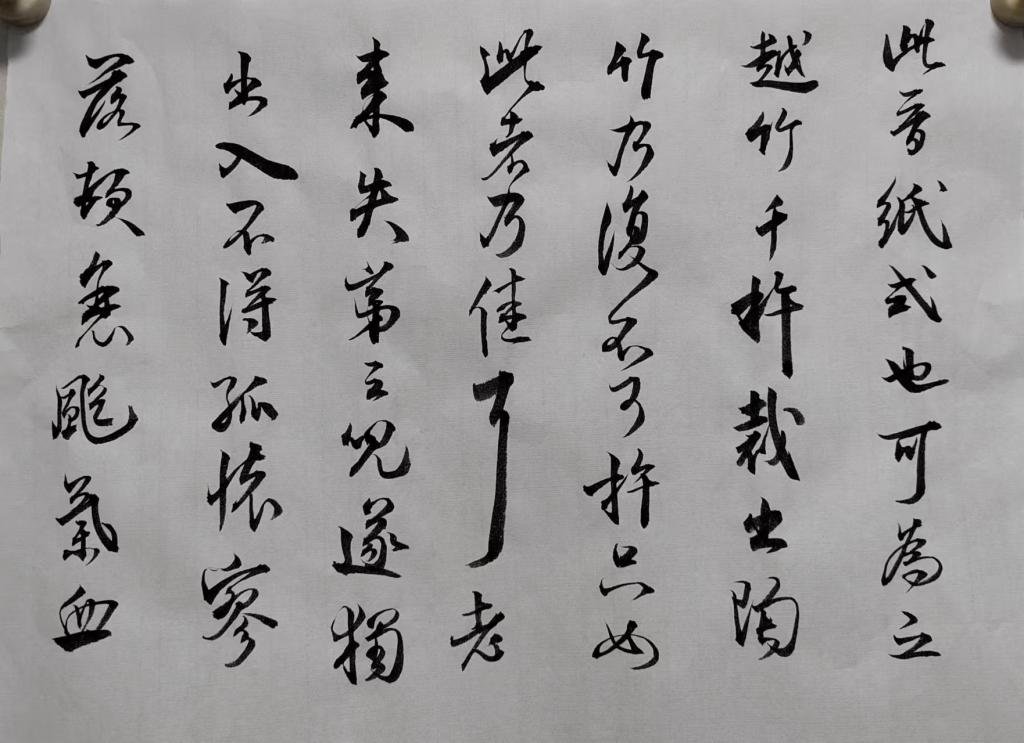 此晉紙式也可為之
越竹千杵裁出陶
竹乃復不可杵只如
此者乃佳耳老
來失第三兒遂獨
出入不得孤懷寥
落頓氣血